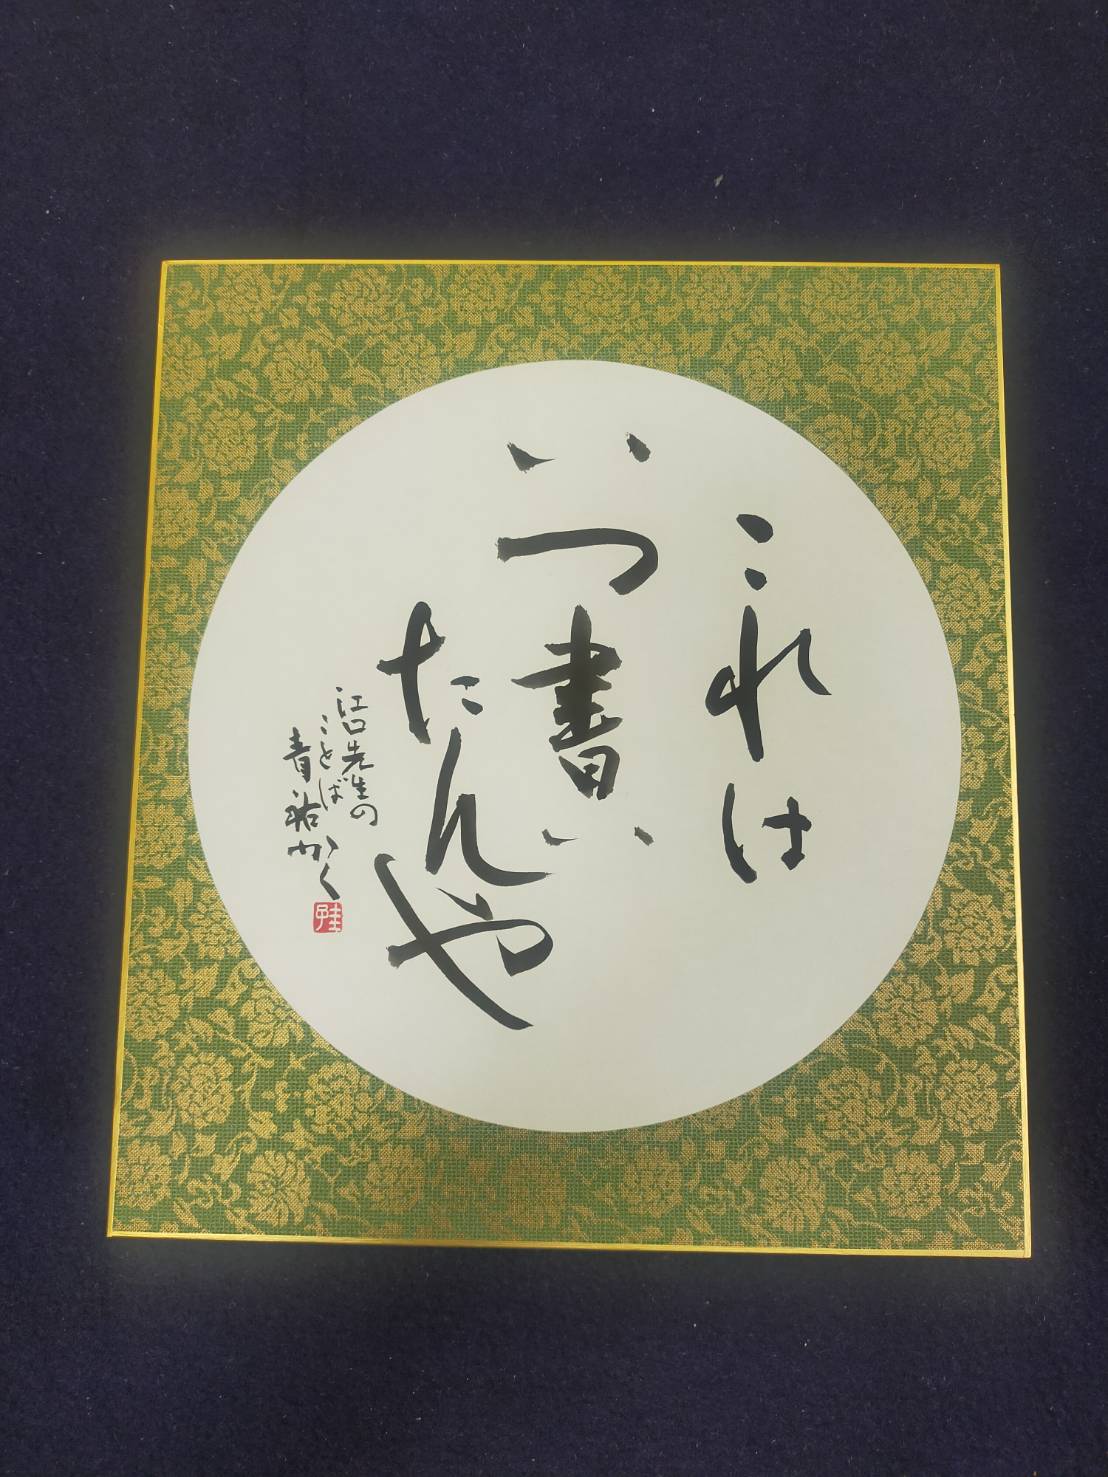 これは
いつ書い
たんや
江口先生の
ことば かく
青祐